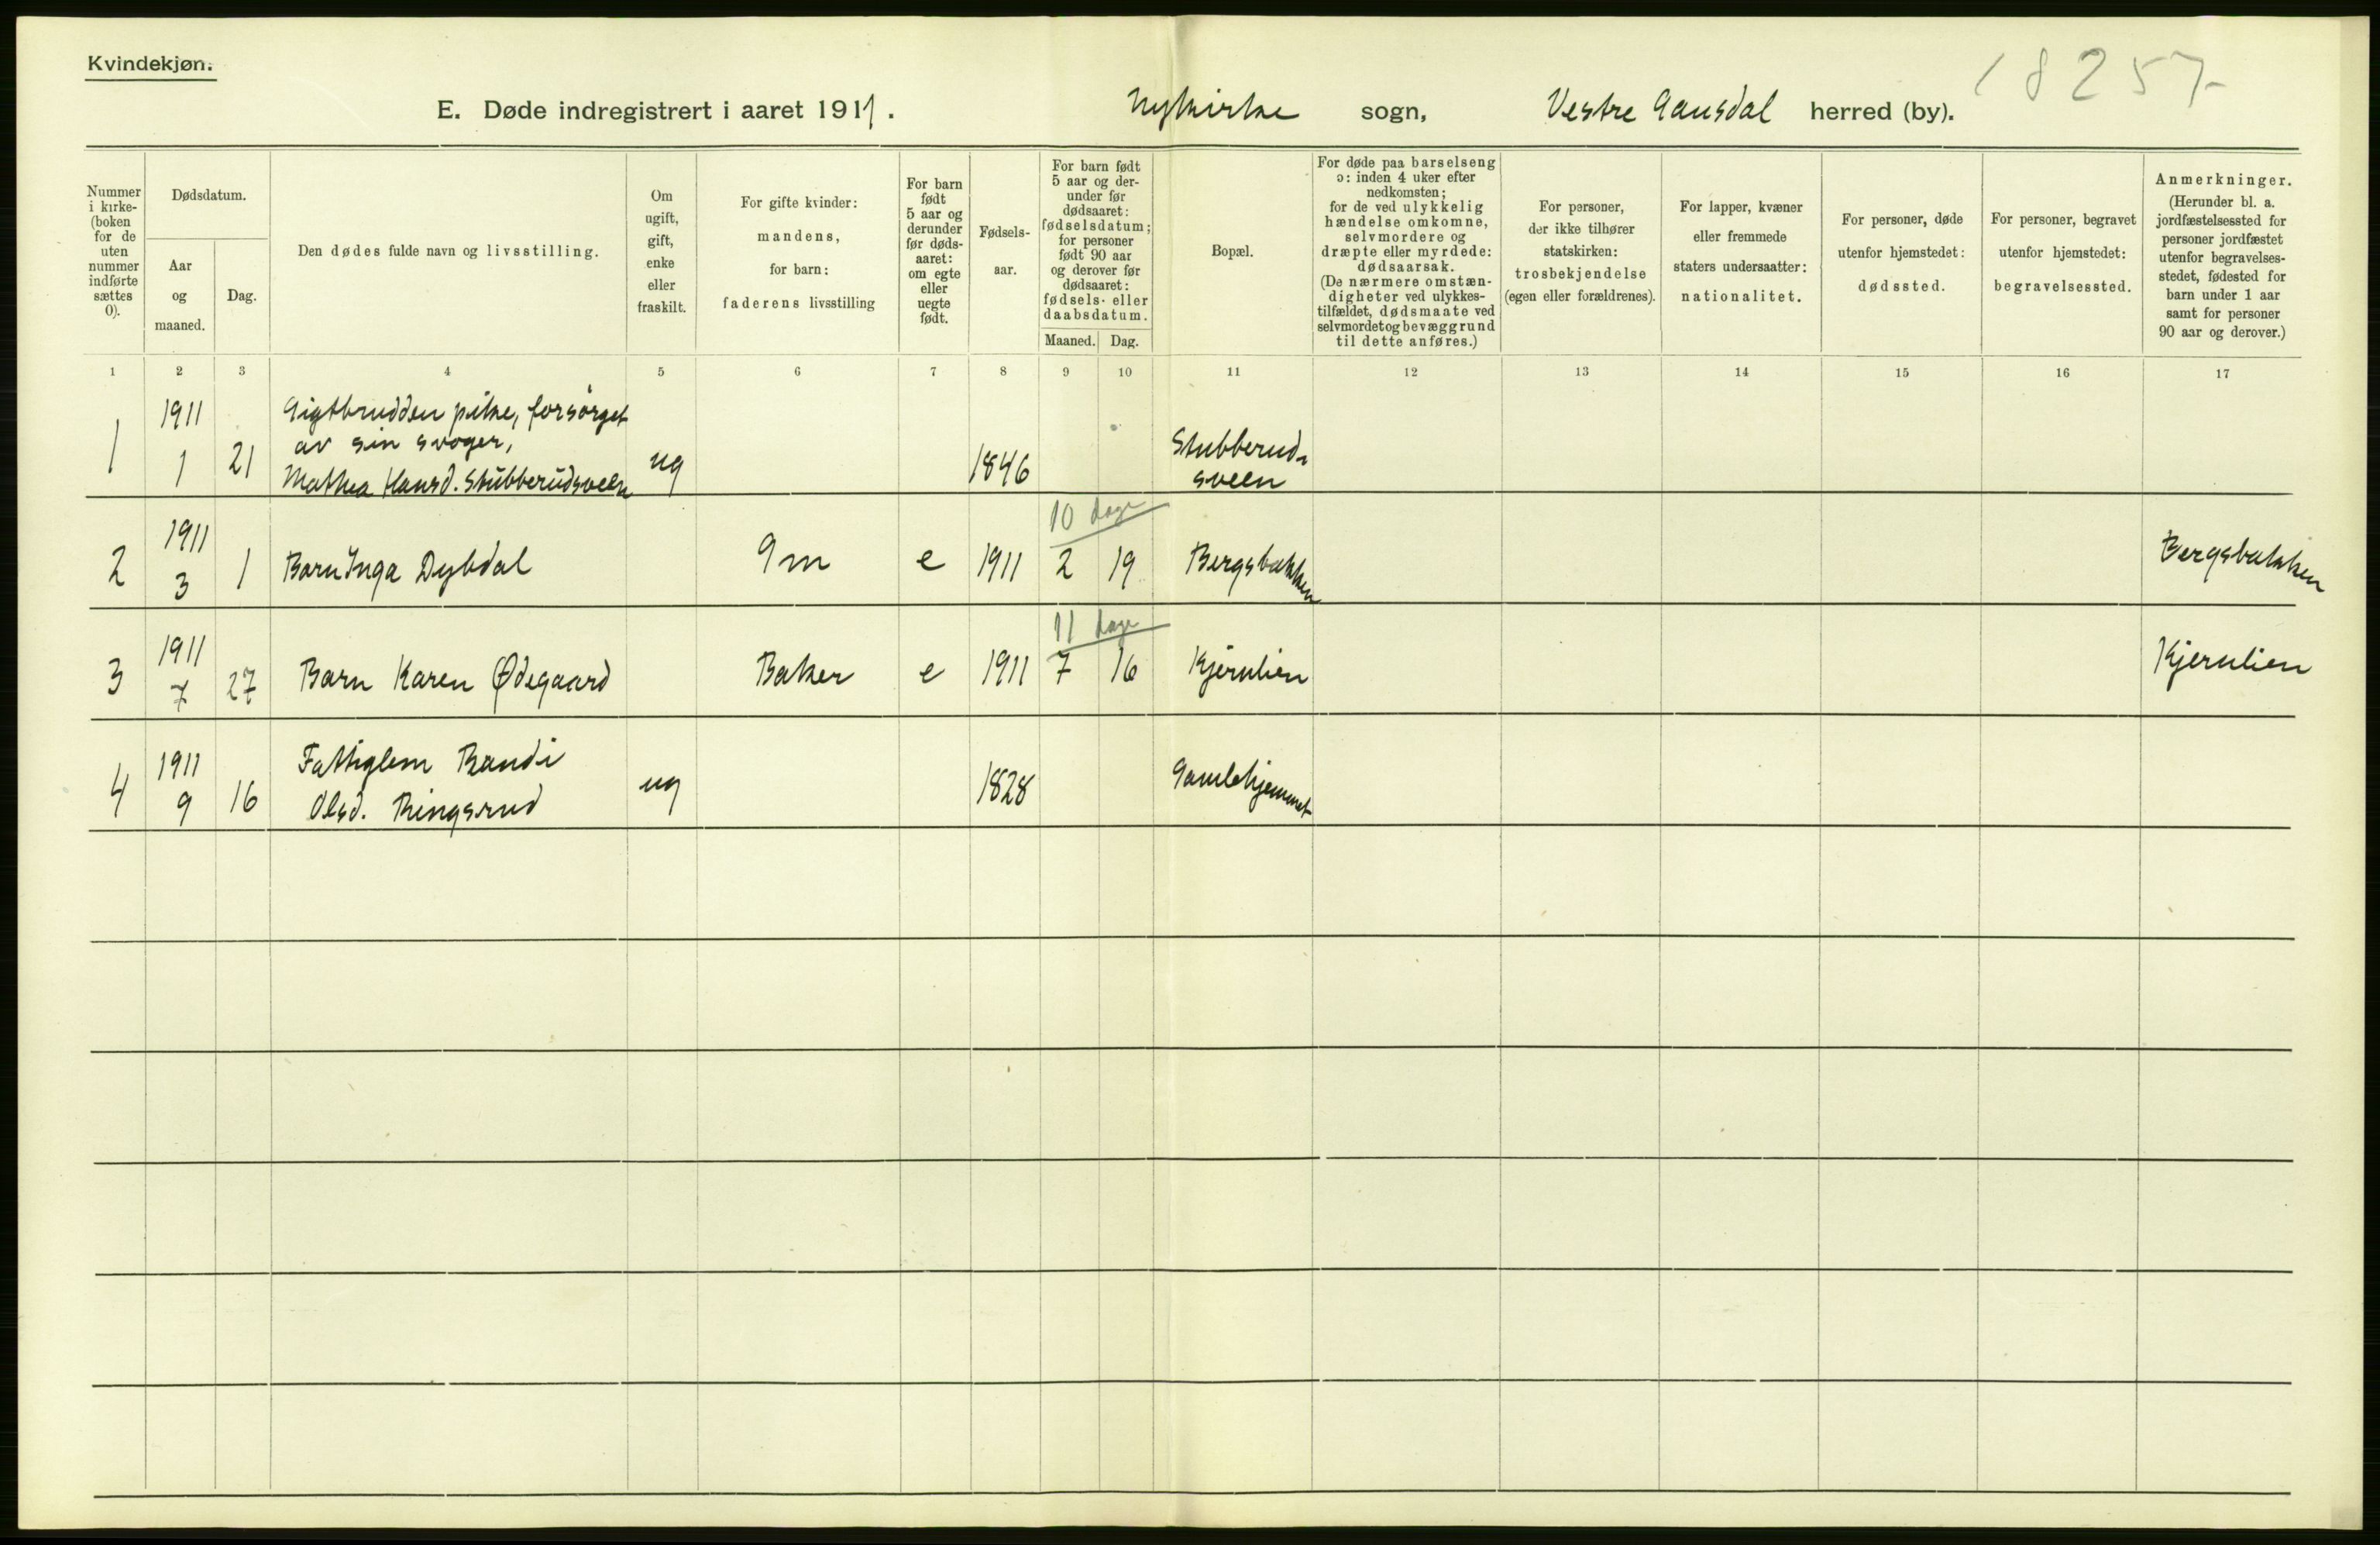 Kvindekjøn.
18257-
E. Døde indregistrert i aaret 1911.
Nykirke sogn, Vestre Gausdal herred (by).
Nummer
i kirke-
(boken
for de
uten
nummer
indførte
sættes
0).
Dødsdatum.
Aar
og
maaned.
Dag.
Den dødes fulde navn og livsstilling.
Om
ugift,
gift,
enke
eller
fraskilt.
For gifte kvinder:
mandens,
for barn:
faderens livsstilling
For barn
født
5 aar og
derunder
før døds-
aaret:
om egte
eller
uegte
født.
Fødsels-
aar.
For barn født
5 aar og der-
under før
dødsaaret:
fødselsdatum;
for personer
født 90 aar
og derover før
dødsaaret:
fødsels- eller
daabsdatum.
Maaned. Dag.
Bopæl.
For døde paa barselseng
ɔ: inden 4 uker efter
nedkomsten;
for de ved ulykkelig
hændelse omkomne,
selvmordere og
dræpte eller myrdede:
dødsaarsak.
(De nærmere omstæn-
digheter ved ulykkes-
tilfældet, dødsmaate ved
selvmordet og bevæggrund
til dette anføres.)
For personer,
der ikke tilhører
statskirken:
trosbekjendelse
(egen eller forældrenes).
For lapper, kvæner
eller fremmede
staters undersaatter:
nationalitet.
For personer, døde
utenfor hjemstedet:
dødssted.
For personer, begravet
utenfor hjemstedet:
begravelsessted.
Anmerkninger.
(Herunder bl. a.
jordfæstelsessted for
personer jordfæstet
utenfor begravelses-
stedet, fødested for
barn under 1 aar
samt for personer
90 aar og derover.)
1 2 3 4 5 6 7 8 9 10 11 12 13 14 15 16 17
1911 Gigtbrudden pike, forsørget
av sin svoger, Stubberud-
1 1 21 Mathea Hansd. Stubberudsveen ug 1846 sveen
10 dage
1911
2 3 1 Barn Inga Dybdal Gm e 1911 2 19 Bergsbakken Bergsbakken
11 dage
1911
3 7 27 Barn Karen Ødegaard Baker e 1911 7 16 Kjernlien Kjernlien
1911 Fattiglem Randi
4 9 16 Olsd. Ringsrud ug 1828 Gamlehjemmet